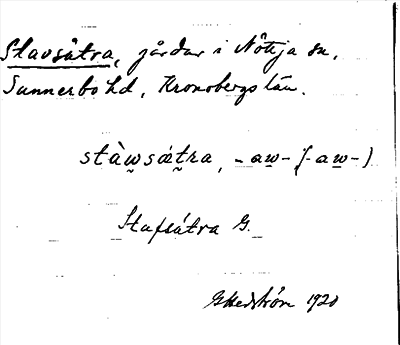 Stavsätra, gårdar i Nöttja sn,
Sunnerbo hd, Kronobergs län.
stàw̰sœt̰ra, -aw̰- (-aw̰-)
Stafsätra G.
GHedström 1920